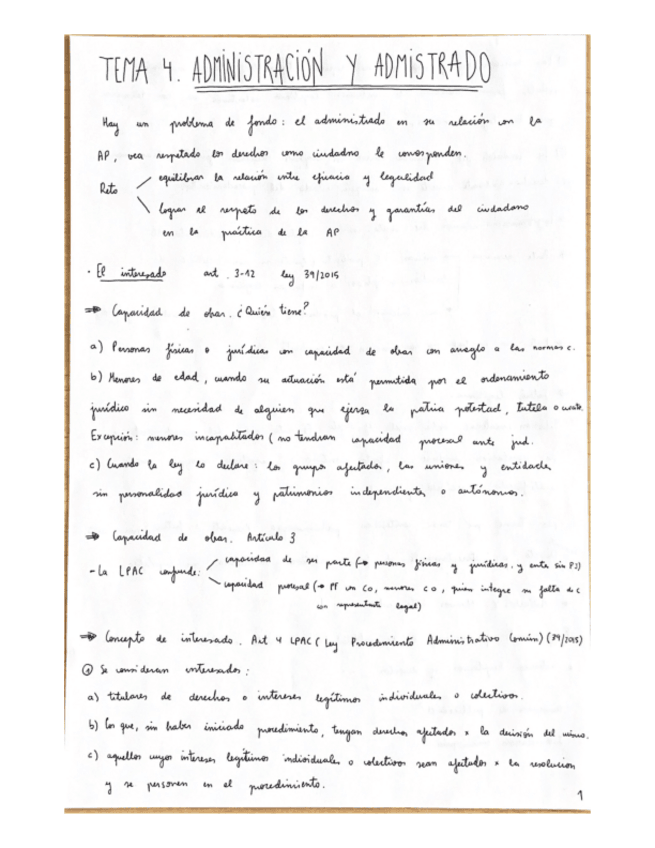 TEMA 4. ADMINISTRACIÓN Y ADMISTRADO
Hay un problema de fondo: el administrado en su relación con la
AP, vea respetado los derechos como ciudadno le corresponden.
Reto equilibrar la relación entre eficacia y legalidad
lograr el respeto de los derechos y garantías del ciudadano
en la práctica de la AP
· El interesado art. 3-12 ley 39/2015
⇒ Capacidad de obrar. ¿Quién tiene?
a) Personas físicas o jurídicas con capacidad de obrar con arreglo a las normas c.
b) Menores de edad, cuando su actuación está permitida por el ordenamiento
jurídico sin necesidad de alguien que ejerza la patria potestad, tutela o curate.
Excepción: menores incapacitados (no tendrían capacidad procesal ante jud.
c) Cuando la ley lo declare: los grupos afectados, las uniones y entidades
sin personalidad jurídica y patrimonios independientes o autónomos.
⇒ Capacidad de obrar. Artículo 3
- La LPAC confunde: capacidad de ser parte (→ personas físicas y jurídicas, y entes sin PJ)
capacidad procesal (→ PF con CO, menores CO, quien integre su falta de C
con representante legal)
⇒ Concepto de interesado. Art 4 LPAC (Ley Procedimiento Administrativo Común) (39/2015)
① Se consideran interesados:
a) titulares de derechos o intereses legítimos individuales o colectivos.
b) Los que, sin haber iniciado procedimiento, tengan derechos afectados x la decisión del mismo.
c) aquellos cuyos intereses legítimos individuales o colectivos sean afectados x la resolucion
y se personen en el procedimiento.
1